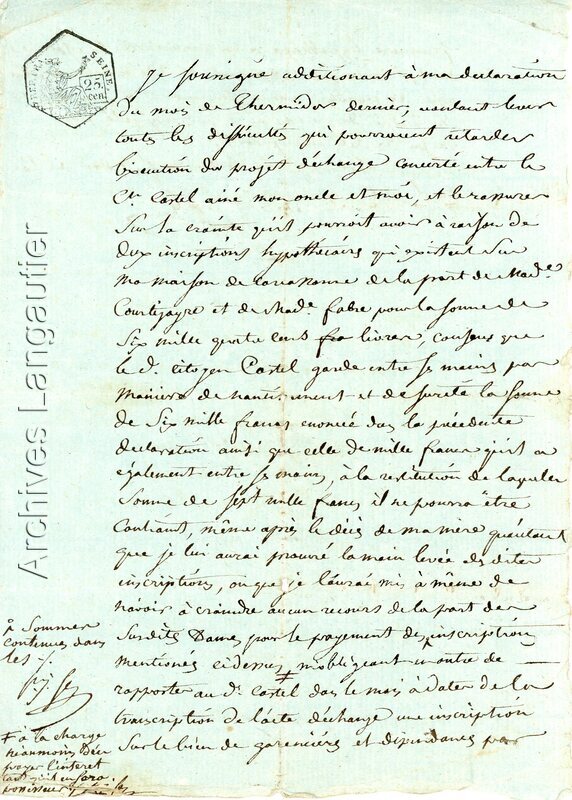 SEINE
25
CEN.
Je soussigné additionant à ma declaration
du mois de Thermidor dernier, voulant lever
toutes les difficultés qui pourroient retarder
l'execution du projet d'échange concerté entre le
Cn. Castel ainé mon oncle et moi, et le rassurer
Sur la crainte qu'il pourroit avoir à raison de
deux inscriptions hypothécaires qui existent Sur
ma maison de de la part de Made.
Courtejayre et de Made. fabre pour la Somme de
Six mille quatre cens livres, consens que
le d. citoyen Castel garde entre Ses mains par
maniere de nantissement et de Sureté la Somme
de Six mille francs enoncée dans la précédente
declaration ainsi que celle de mille francs qu'il a
également entre Ses mains, à la restitution de laquelle
Somme de Sept mille francs il ne pourra être
Contraint, même après le décès de ma mère qu'autant
que je lui aurai procuré la main levée des dites
inscriptions, ou que je l'aurai mis à même de
n'avoir à craindre aucun recours de la part des
Susdites Dames pour le payement des inscriptions
mentionés cidessus, m'obligeant en outre de
rapporter au d. Castel dans le mois à dater de la
transcription de l'acte d'échange une inscription
Sur le bien de et dépendances par
Sommes
contenues dans
les
à la charge
néanmoins d'en
payer l'interet
tant qu'il en Sera
possesseur
Archives Langautier